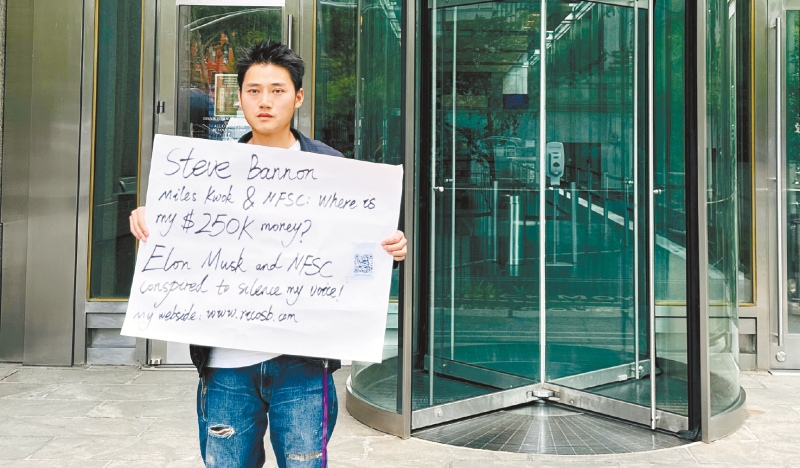 Steve Bannon
Miles Kwok & NFSC: Where is
my $250K money?
Elon Musk and NFSC
conspired to silence my voice!
My webside: www.rucosb.com